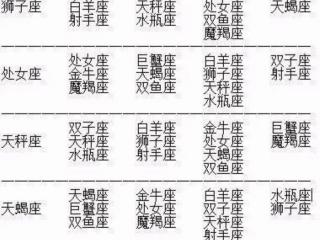 狮子座 白羊座 天秤座 处女座 天蝎座
射手座 水瓶座 双鱼座
魔羯座
处女座 巨蟹座 白羊座 双子座
处女座 金牛座 天蝎座 狮子座 射手座
魔羯座 双鱼座 天秤座
水瓶座
双子座 白羊座 金牛座 巨蟹座
天秤座 天秤座 狮子座 处女座 魔羯座
水瓶座 射手座 天蝎座
双鱼座
天蝎座 金牛座 白羊座 水瓶座
天蝎座 巨蟹座 处女座 双子座 狮子座
双鱼座 魔羯座 天秤座
射手座